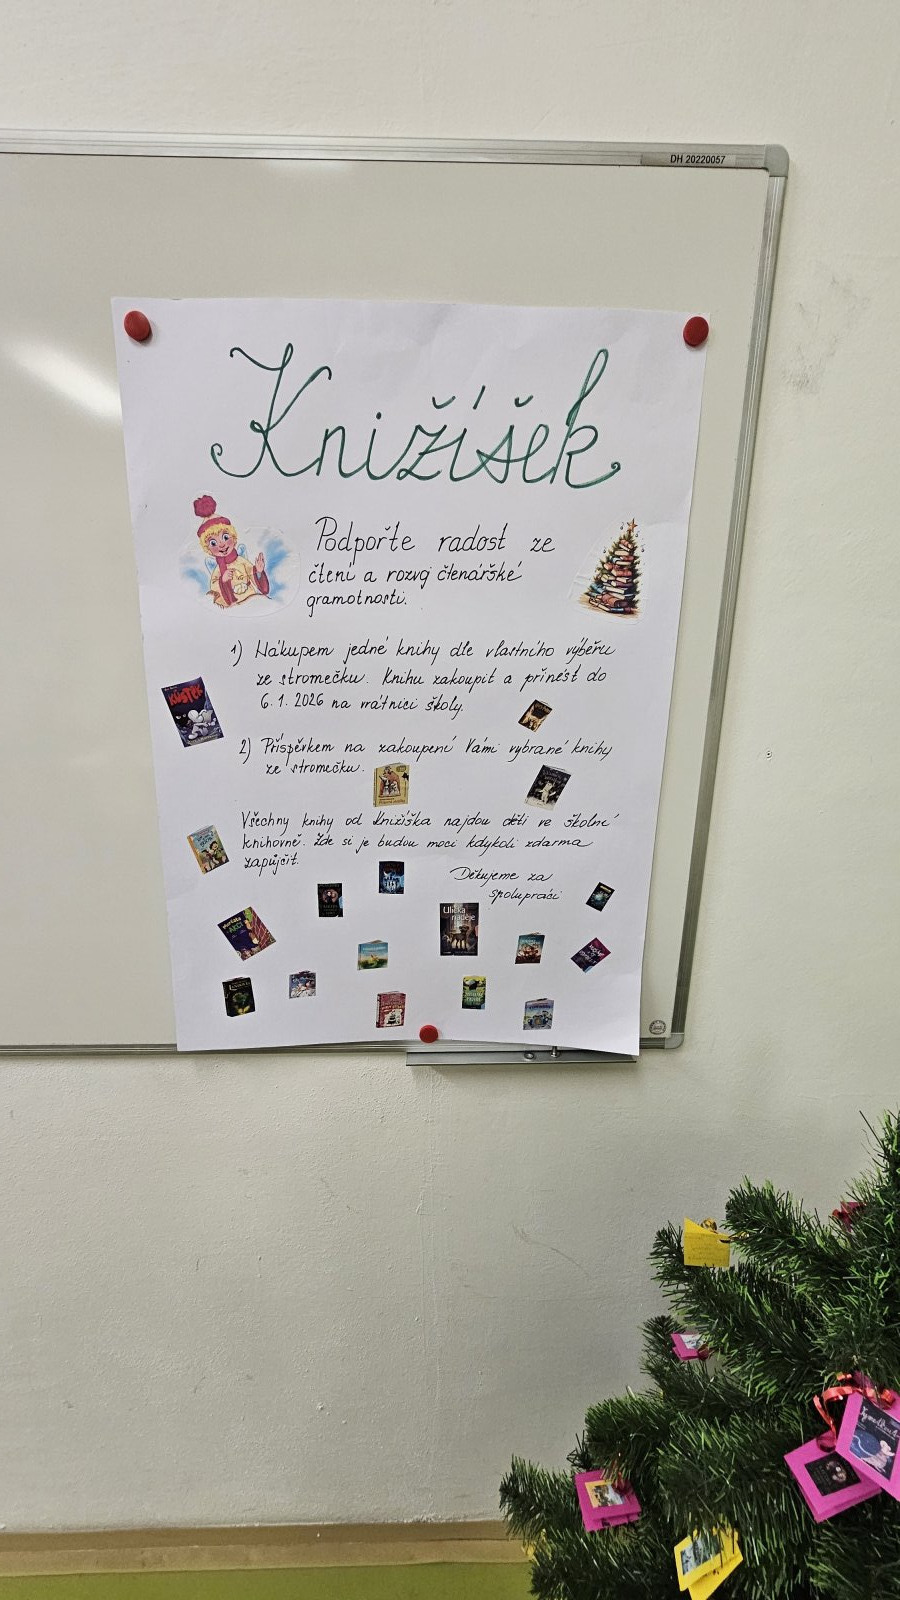 DH 20220057
Knižíšek
Podpořte radost ze
čtení a rozvoj čtenářské
gramotnosti.
1) Nákupem jedné knihy dle vlastního výběru
ze stromečku. Knihu zakoupit a přinést do
6.1.2026 na vrátnici školy.
2) Příspěvkem na zakoupení Vámi vybrané knihy
ze stromečku.
Všechny knihy od Knižíška najdou děti ve školní
knihovně. Zde si je budou moci kdykoli zdarma
zapůjčit.
Děkujeme za
spolupráci
KŮSTEK
Ulička
naděje